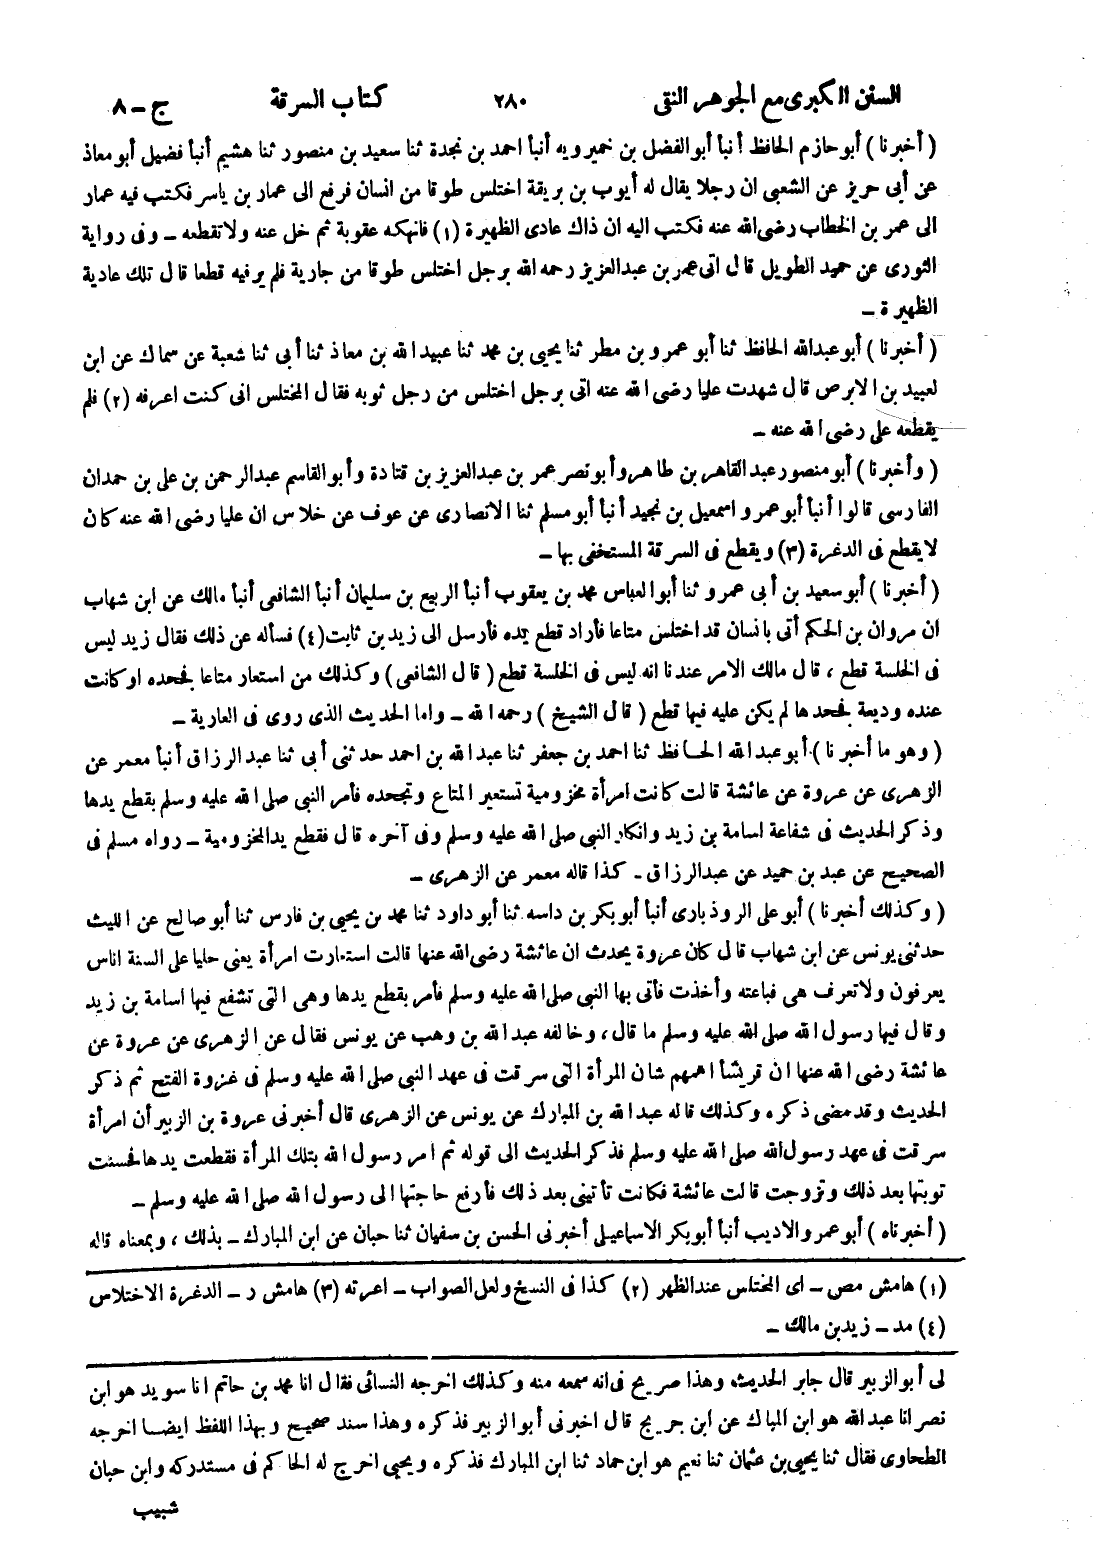 السنن الكبرى مع الجوهر النقى ٢٨٠ كتاب السرقة ج - ٨
( أخبرنا ) أبو حازم الحافظ أنبأ أبو الفضل بن خميرويه أنبأ احمد بن نجدة ثنا سعيد بن منصور ثنا هشيم أنبأ فضيل أبو معاذ
عن أبى حريز عن الشعبى ان رجلا يقال له أيوب بن بريقة اختلس طوقا من انسان فرفع الى عمار بن ياسر فكتب فيه عمار
الى عمر بن الخطاب رضى الله عنه فكتب اليه ان ذاك عادى الظهيرة (١) فانهكه عقوبة ثم خل عنه ولا تقطعه - وفى رواية
الثورى عن حميد الطويل قال اتى عمر بن عبد العزيز رحمه الله برجل اختلس طوقا من جارية فلم ير فيه قطعا قال تلك عادية
الظهيرة -
( أخبرنا ) أبو عبد الله الحافظ ثنا أبو عمرو بن مطر ثنا يحيى بن محمد ثنا عبيد الله بن معاذ ثنا أبى ثنا شعبة عن سماك عن ابن
لعبيد بن الابرص قال شهدت عليا رضى الله عنه اتى برجل اختلس من رجل ثوبه فقال المختلس انى كنت اعرفه (٢) فلم
يقطعه على رضى الله عنه -
( وأخبرنا ) أبو منصور عبد القاهر بن طاهر وأبو نصر عمر بن عبد العزيز بن قتادة وأبو القاسم عبد الرحمن بن على بن حمدان
الفارسى قالوا أنبأ أبو عمرو اسمعيل بن نجيد أنبأ أبو مسلم ثنا الانصارى عن عوف عن خلاس ان عليا رضى الله عنه كان
لا يقطع فى الدغرة (٣) ويقطع فى السرقة المستخفى بها -
( أخبرنا ) أبو سعيد بن أبى عمرو ثنا أبو العباس محمد بن يعقوب أنبأ الربيع بن سليمان أنبأ الشافعى أنبأ مالك عن ابن شهاب
ان مروان بن الحكم أتى بانسان قد اختلس متاعا فأراد قطع يده فأرسل الى زيد بن ثابت (٤) فسأله عن ذلك فقال زيد ليس
فى الخلسة قطع ، قال مالك الامر عندنا انه ليس فى الخلسة قطع ( قال الشافعى ) وكذلك من استعار متاعا فجحده او كانت
عنده وديعة فجحدها لم يكن عليه فيها قطع ( قال الشيخ ) رحمه الله - واما الحديث الذى روى فى العارية -
( وهو ما أخبرنا ) أبو عبد الله الحافظ ثنا احمد بن جعفر ثنا عبد الله بن احمد حدثنى أبى ثنا عبد الرزاق أنبأ معمر عن
الزهرى عن عروة عن عائشة قالت كانت امرأة مخزومية تستعير المتاع وتجحده فأمر النبى صلى الله عليه وسلم بقطع يدها
وذكر الحديث فى شفاعة اسامة بن زيد وانكار النبى صلى الله عليه وسلم وفى آخره قال فقطع يد المخزومية - رواه مسلم فى
الصحيح عن عبد بن حميد عن عبد الرزاق - كذا قاله معمر عن الزهرى -
( وكذلك أخبرنا ) أبو على الروذبارى أنبأ أبو بكر بن داسه ثنا أبو داود ثنا محمد بن يحيى بن فارس ثنا أبو صالح عن الليث
حدثنى يونس عن ابن شهاب قال كان عروة يحدث ان عائشة رضى الله عنها قالت استعارت امرأة يعنى حليا على السنة اناس
يعرفون ولا تعرف هى فباعته وأخذت فأتى بها النبى صلى الله عليه وسلم فأمر بقطع يدها وهى التى تشفع فيها اسامة بن زيد
وقال فيها رسول الله صلى الله عليه وسلم ما قال ، وخالفه عبد الله بن وهب عن يونس فقال عن الزهرى عن عروة عن
عائشة رضى الله عنها ان قريشا اهمهم شان المرأة التى سرقت فى عهد النبى صلى الله عليه وسلم فى غزوة الفتح ثم ذكر
الحديث وقد مضى ذكره وكذلك قاله عبد الله بن المبارك عن يونس عن الزهرى قال أخبرنى عروة بن الزبير أن امرأة
سرقت فى عهد رسول الله صلى الله عليه وسلم فذكر الحديث الى قوله ثم امر رسول الله بتلك المرأة فقطعت يدها فحسنت
توبتها بعد ذلك وتزوجت قالت عائشة فكانت تأتينى بعد ذلك فأرفع حاجتها الى رسول الله صلى الله عليه وسلم -
( أخبرناه ) أبو عمرو الاديب أنبأ أبو بكر الاسماعيلى أخبرنى الحسن بن سفيان ثنا حبان عن ابن المبارك - بذلك ، وبمعناه قاله
(١) هامش مص - اى المختلس عند الظهر (٢) كذا فى النسخ ولعل الصواب - اعرته (٣) هامش ر - الدغرة الاختلاس
(٤) مد - زيد بن مالك -
لى أبو الزبير قال جابر الحديث وهذا صريح فى انه سمعه منه وكذلك اخرجه النسائى فقال انا محمد بن حاتم انا سويد هو ابن
نصر انا عبد الله هو ابن المبارك عن ابن جريج قال اخبرنى أبو الزبير فذكره وهذا سند صحيح وبهذا اللفظ ايضا اخرجه
الطحاوى فقال ثنا يحيى بن عثمان ثنا نعيم هو ابن حماد ثنا ابن المبارك فذكره ويحيى اخرج له الحاكم فى مستدركه وابن حبان
شبيب